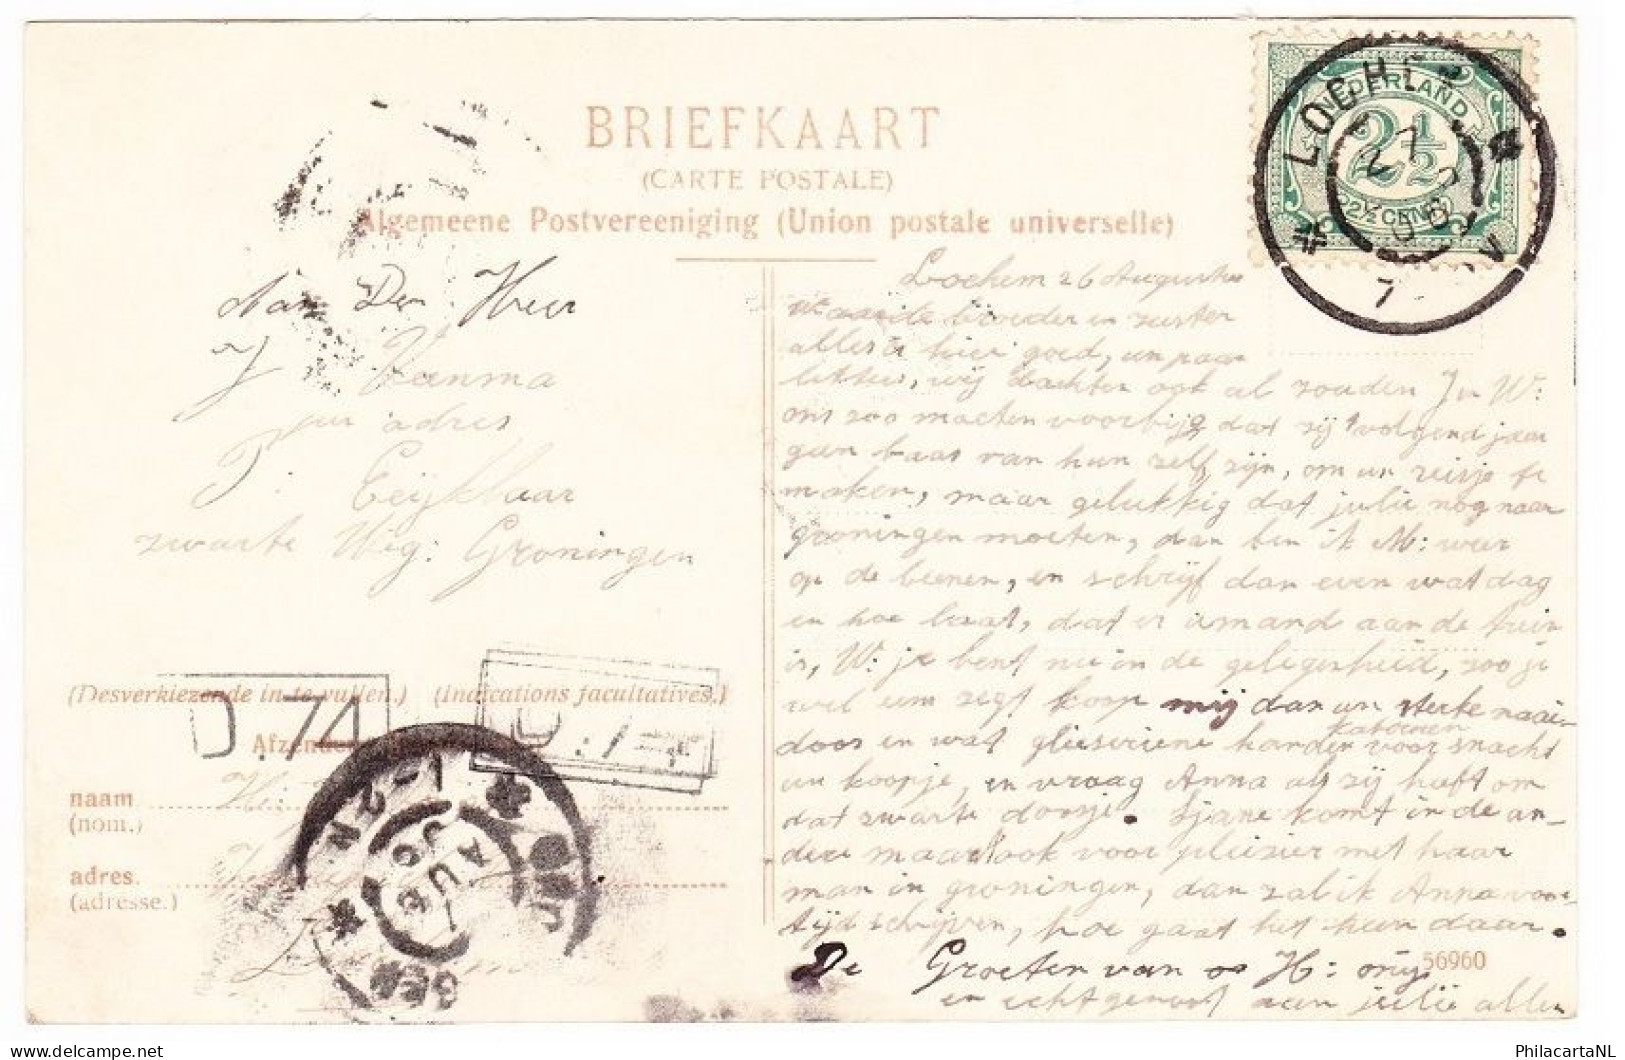 BRIEFKAART
(CARTE POSTALE)
Algemeene Postvereeniging (Union postale universelle)
NEDERLAND
2½
2½ CENT
LOCHEM
27
7 V
Aan Den Heer
J Veenma
per adres
T: Eeijkelaar
zwarte Weg: Groningen
(Desverkiezende in te vullen.) (Indications facultatives.)
D.74
Afzender
naam
(nom.)
adres.
(adresse.)
1-2N
AUG
Lochem 26 Augustus
waarde broeder en zuster
alles is hier goed, een paar
wij dachten ook al zouden J en W:
ons zoo moeten voorbijg dat zij 't volgend jaar
geen baas van hun zelf zijn, om een reisje te
maken, maar gelukkig dat julie nog naar
groningen moeten, dan ben ik M: weer
op de beenen, en schrijf dan even wat dag
en hoe laat, dat er iemand aan de trein
is, W: je bent nu in de gelegenheid, zoo je
wel een zegt koop mij dan een sterke naai-
doos en wat glieseriene handen voor snachts
katoenen
een koopje, en vraag Anna als zij heeft om
dat zwarte doosje. Sjane komt in de an-
dere maand ook voor pleizier met haar
man in groningen, dan zal ik Anna voor
tijd schrijven, hoe gaat het hun daar.
De Groeten van H:
en echtgenoot aan julie allen
56960
PhilacartaNL